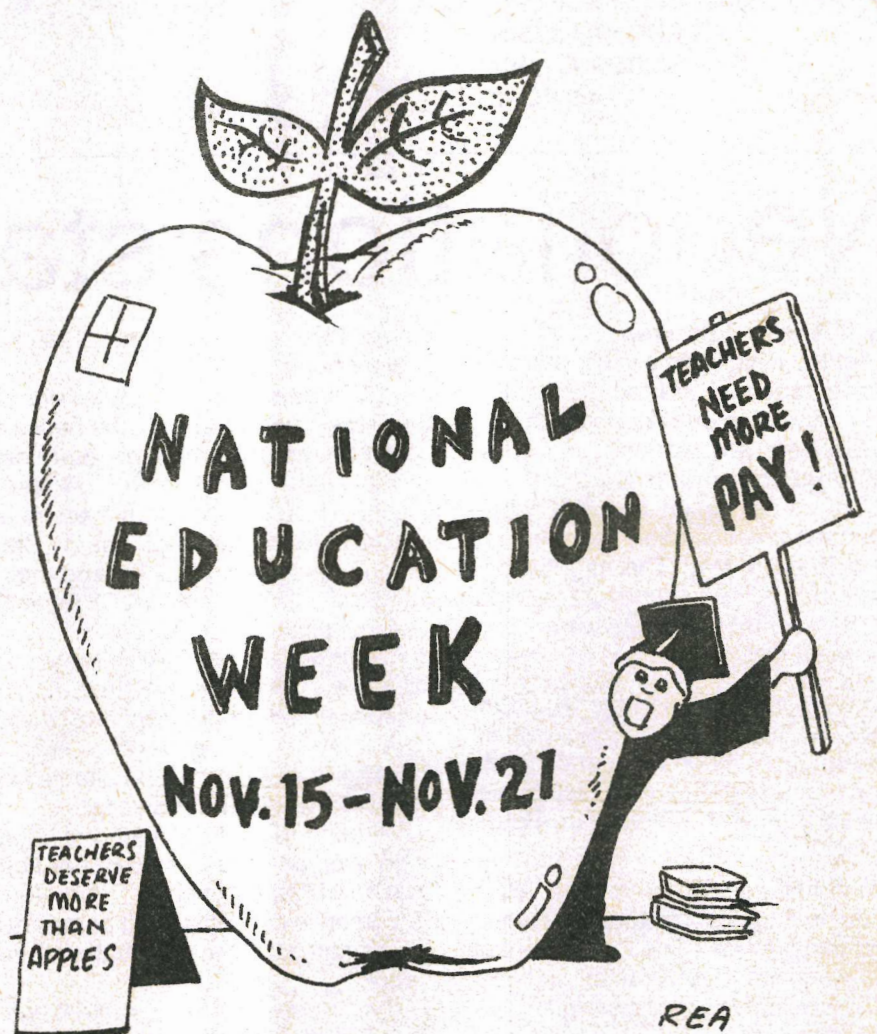 NATIONAL
EDUCATION
WEEK
NOV. 15 - NOV. 21
TEACHERS
NEED
MORE
PAY!
TEACHERS
DESERVE
MORE
THAN
APPLES
REA